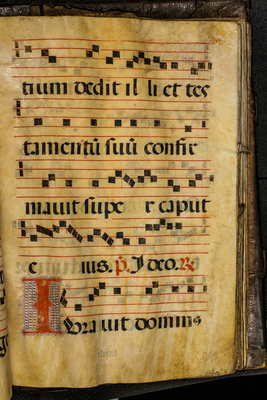 tium dedit il li et tes
tamentū suū confir
mavit supe r caput
e ius. p̄. Ideo. R̄
Iuravit dominus